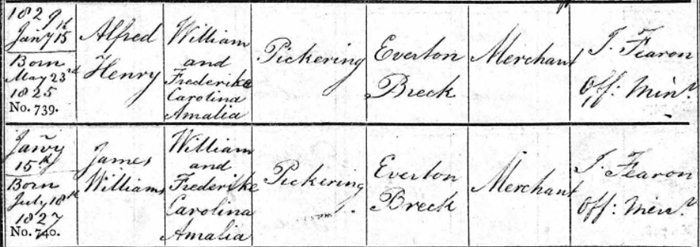 1829
Jany 15th
Born
May 23rd
1825
No. 739.
Alfred
Henry
William
and
Frederike
Carolina
Amalia
Pickering
Everton
Breck
Merchant
J. Fearon
Off: Minr
Janry
15th
Born
July 18th
1827
No. 740.
James
Williams
William
and
Frederike
Carolina
Amalia
Pickering
Everton
Breck
Merchant
J. Fearon
Off: Minr